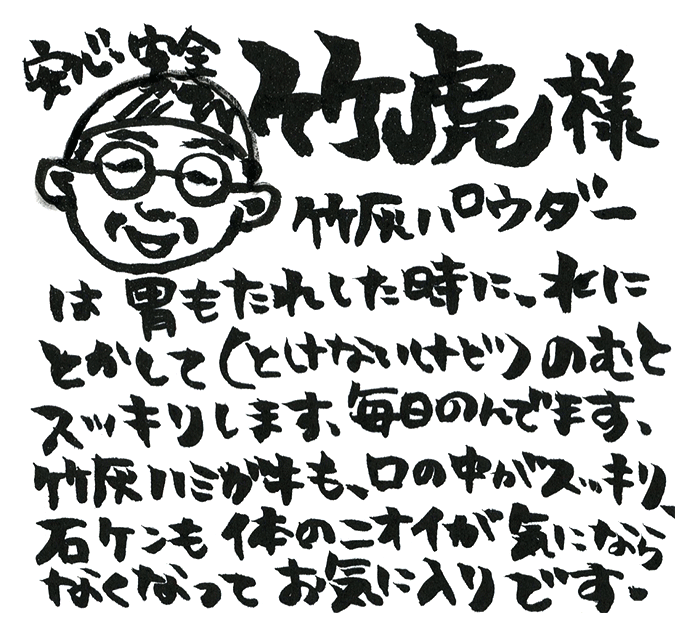 安心・安全
竹虎様
竹灰パウダー
は胃もたれした時に、水に
とかして(とけないけど)のむと
スッキリします、毎日のんでます、
竹灰ハミガキも、口の中がスッキリ、
石ケンも体のニオイが気になら
なくなってお気に入りです。